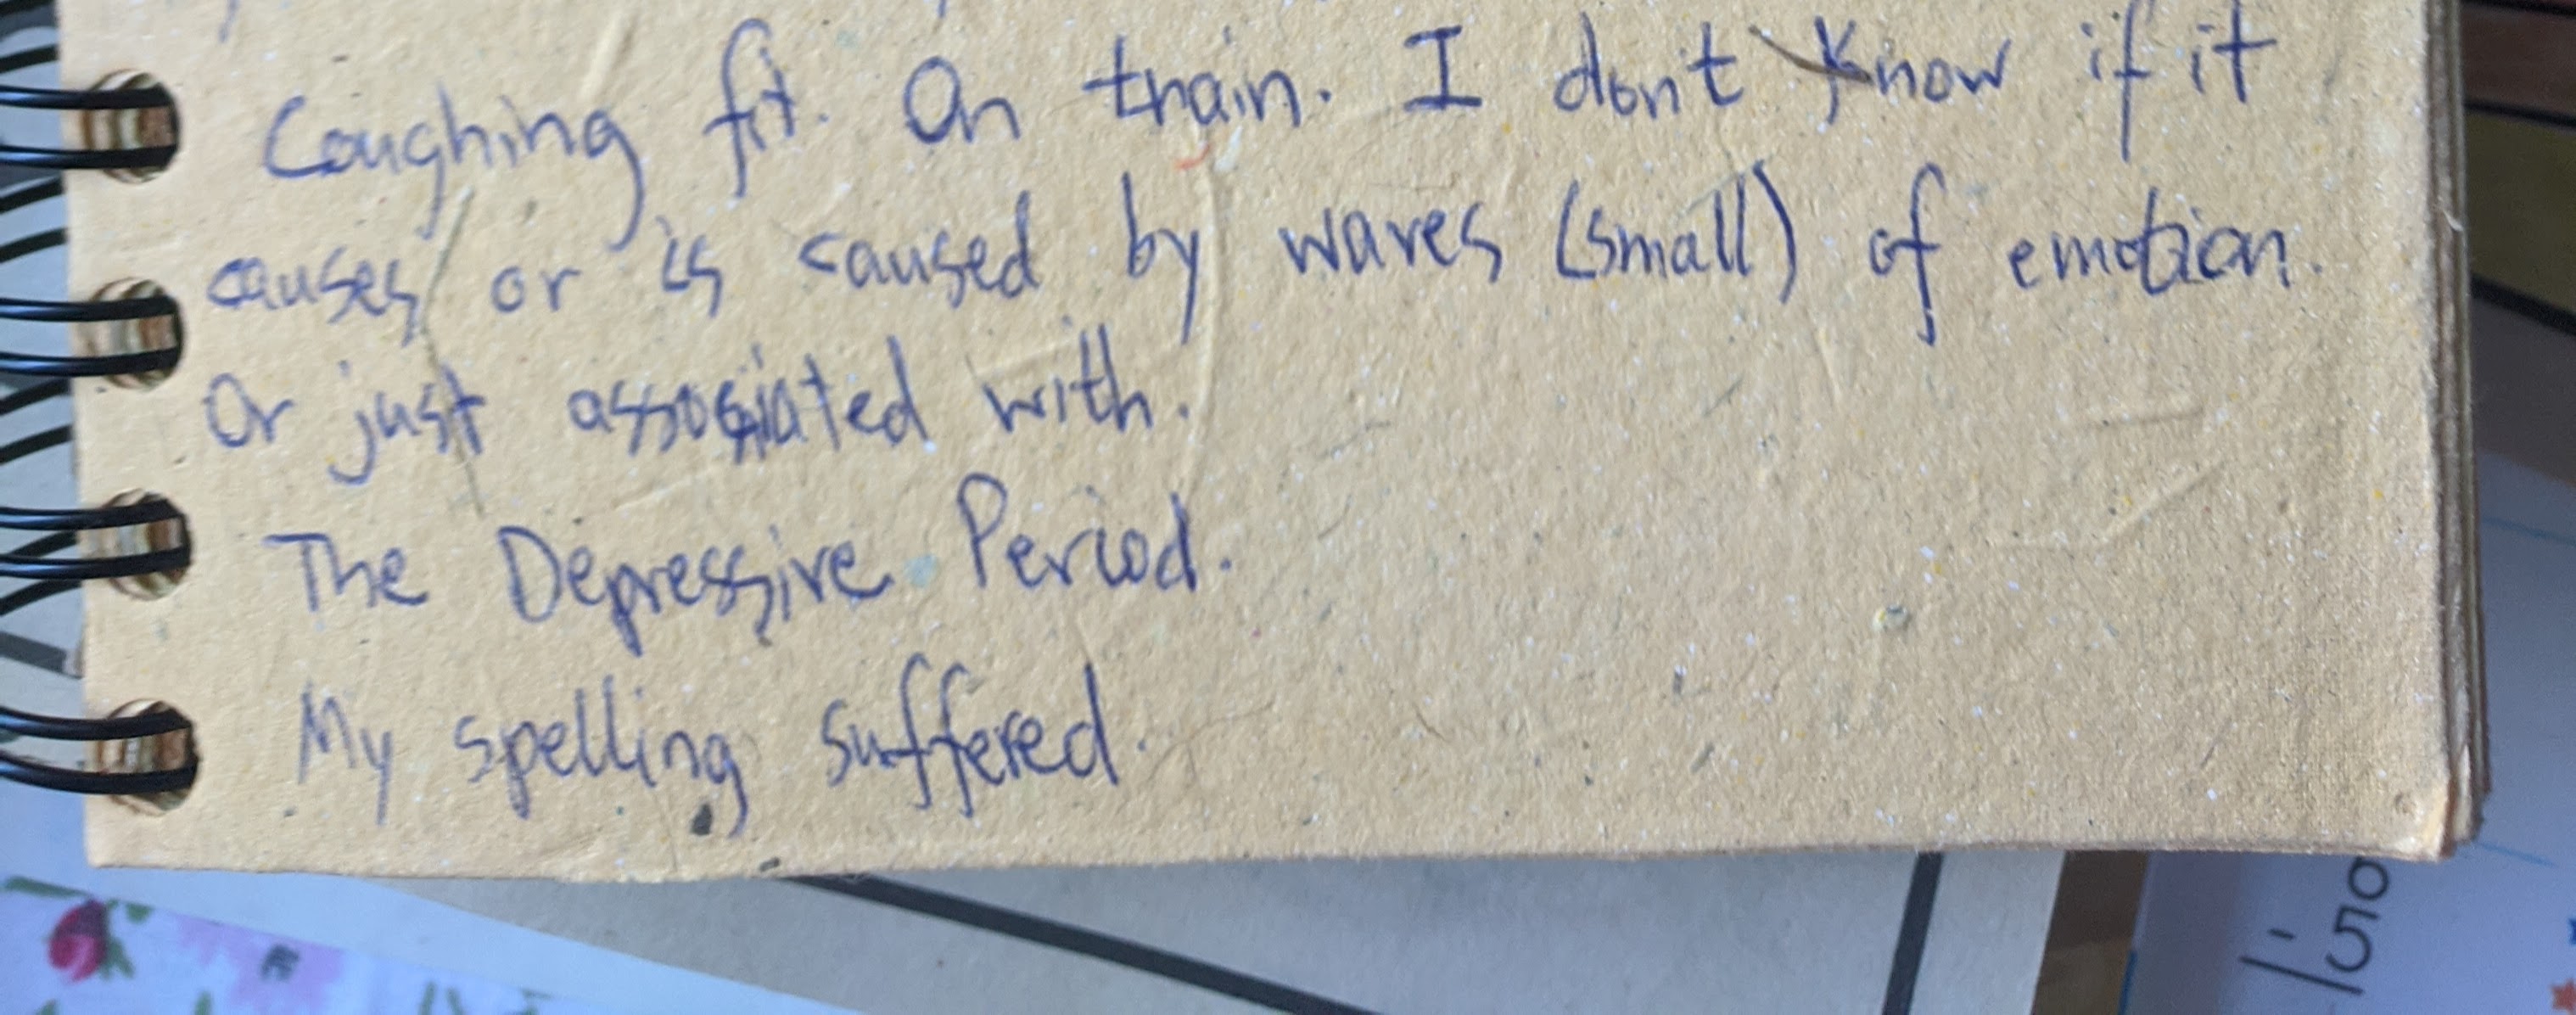 Coughing fit. On train. I don't know if it
causes/ or is caused by waves (small) of emotion.
Or just associated with.
The Depressive Period.
My spelling suffered.